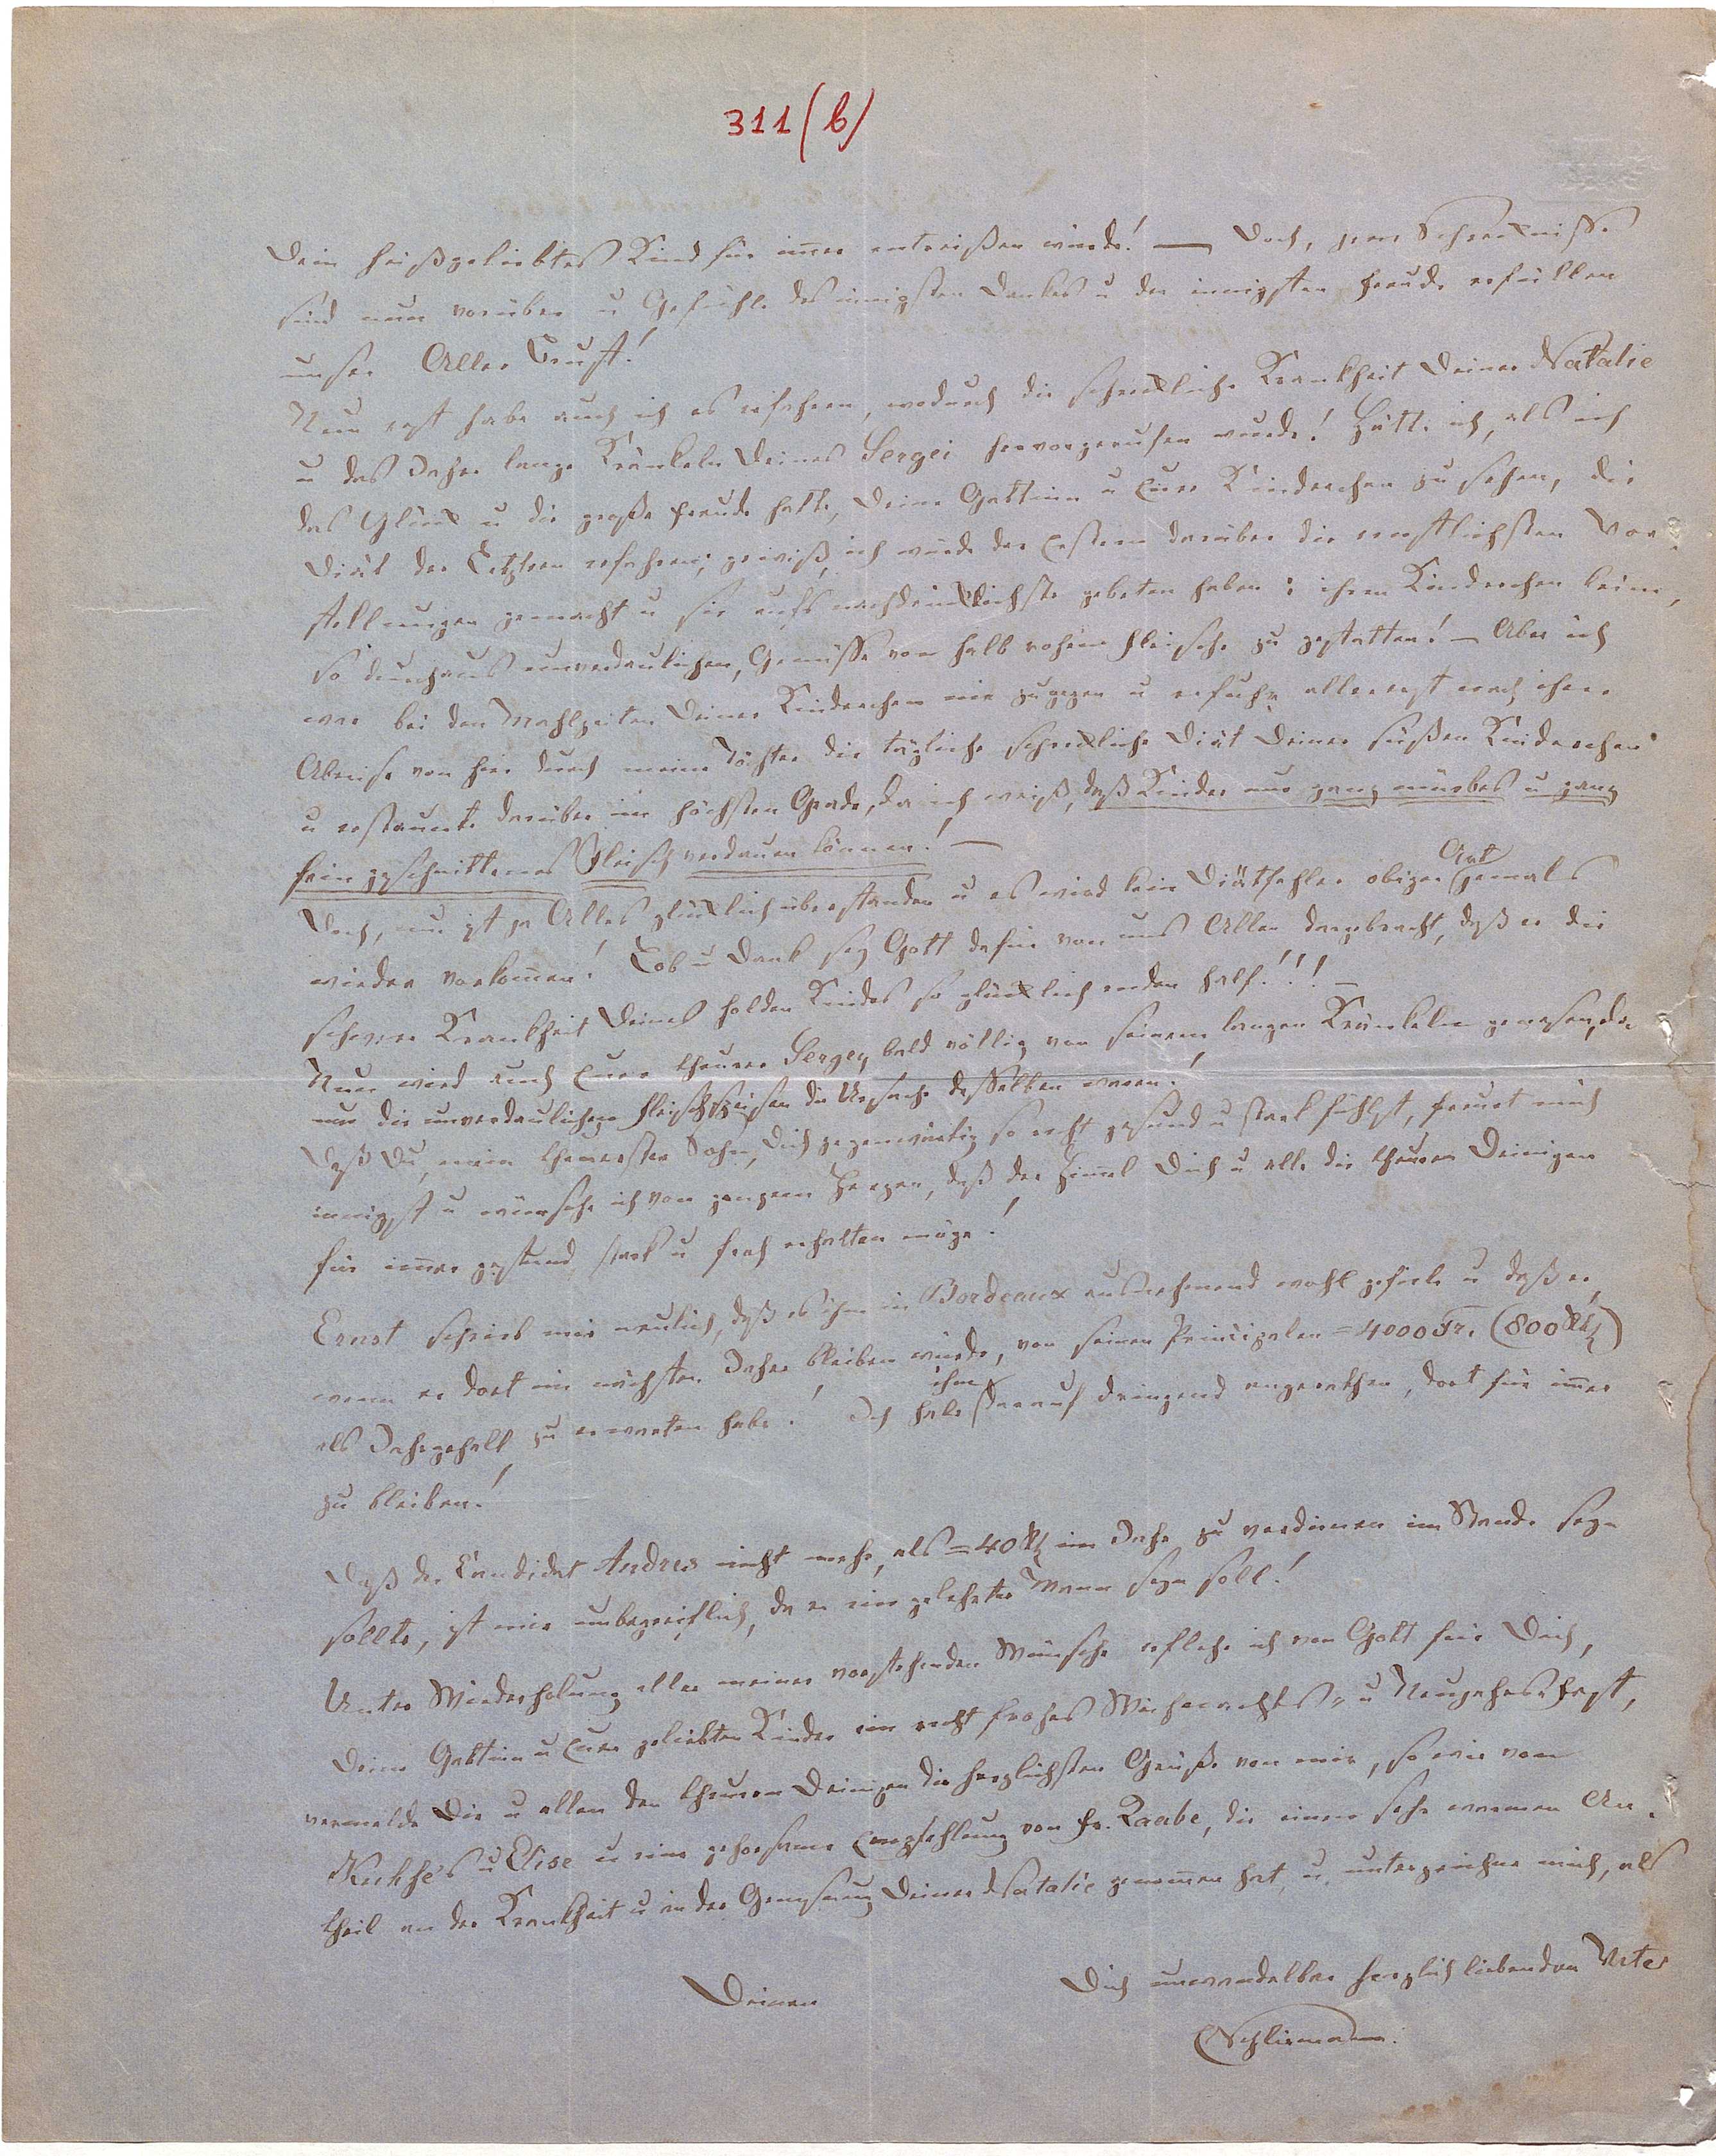 311/b/
Dein heißgeliebtes Kind für im̄er entreißen würde! — Doch, jene Schrecknisse
sind nun vorüber u Gefühle des innigsten Dankes u der innigsten Freude erfüllen
unser Aller Brust!
Nun erst habe auch ich es erfahren, wodurch die schreckliche Krankheit Deiner Natalie
u das Jahre lange Kränkeln Deines Sergei hervorgerufen wurde! Hätte ich, als ich
das Glück u die große Freude hatte, Deine Gattinn u Eure Kinderchen zu sehen, die
Diät der Letztern erfahren; gewiß, ich würde der Erstern darüber die ernstlichsten Vor-
stellungen gemacht u sie aufs nachdrücklichste gebeten haben: ihren Kinderchen keine,
so durchaus unverdaulichen, Genüsse von halb rohem Fleische zu gestatten! — Aber ich
war bei den Mahlzeiten Deiner Kinderchen nie zugegen u erfuhr allererst nach ihrer
Abreise von hier durch meine Töchter die tägliche schreckliche Diät Deiner süßen Kinderchen
u erstaunte darüber im höchsten Grade, da ich weiß, daß Kinder nur ganz mürbes u ganz
fein geschnittenes Fleisch verdauen können! —
Doch, nun ist ja Alles glücklich überstanden u es wird kein Diätfehler obiger Art jemals
wieder vorkom̄en! Lob u Dank sey Gott dafür von uns Allen dargebracht, daß er die
schwere Krankheit Deines holden Kindes so glücklich enden half!!! —
Nun wird auch Euer theurer Sergey bald völlig von seinem langen Kränkeln genesen, da
nur die unverdaulichen Fleischspeisen die Ursache desselben waren!
Daß Du, mein theuerster Sohn, Dich gegenwärtig so recht gesund u stark fühlst, freuet mich
innigst u wünsche ich von ganzem Herzen, daß der Him̄el Dich u alle die theuren Deinigen
für im̄er gesund, stark u froh erhalten möge!
Ernst schrieb mir neulich, daß es ihm in Bordeaux ausnehmend wohl gefiele u daß er,
wenn er dort im nächsten Jahre bleiben würde, von seinen Principalen = 4000 Fr. (800 Rth)
als Jahrgehalt zu erwarten habe! Ich habe ihm darauf dringend angerathen, dort für im̄er
zu bleiben!
Daß der Candidat Andres nicht mehr, als = 40 Rth im Jahr zu verdienen im Stande seyn
sollte, ist mir unbegreiflich, da er ein gelehrter Mann seyn soll!
Unter Wiederholung aller meiner vorstehenden Wünsche erflehe ich von Gott für Dich,
Deine Gattinn u Eure geliebten Kinder ein recht frohes Weihnachts- u Neujahrs-Fest,
vermelde Dir u allen den theuren Deinigen die herzlichsten Grüße von mir, so wie von
Kuhse's u Elise u eine gehorsame Empfehlung von Fr. Raabe, die einen sehr warmen An-
theil an der Krankheit u an der Genesung Deiner Natalie genom̄en hat, u unterzeichne mich, als
Deinen Dich unwandelbar herzlich liebenden Vater
Schliemann.